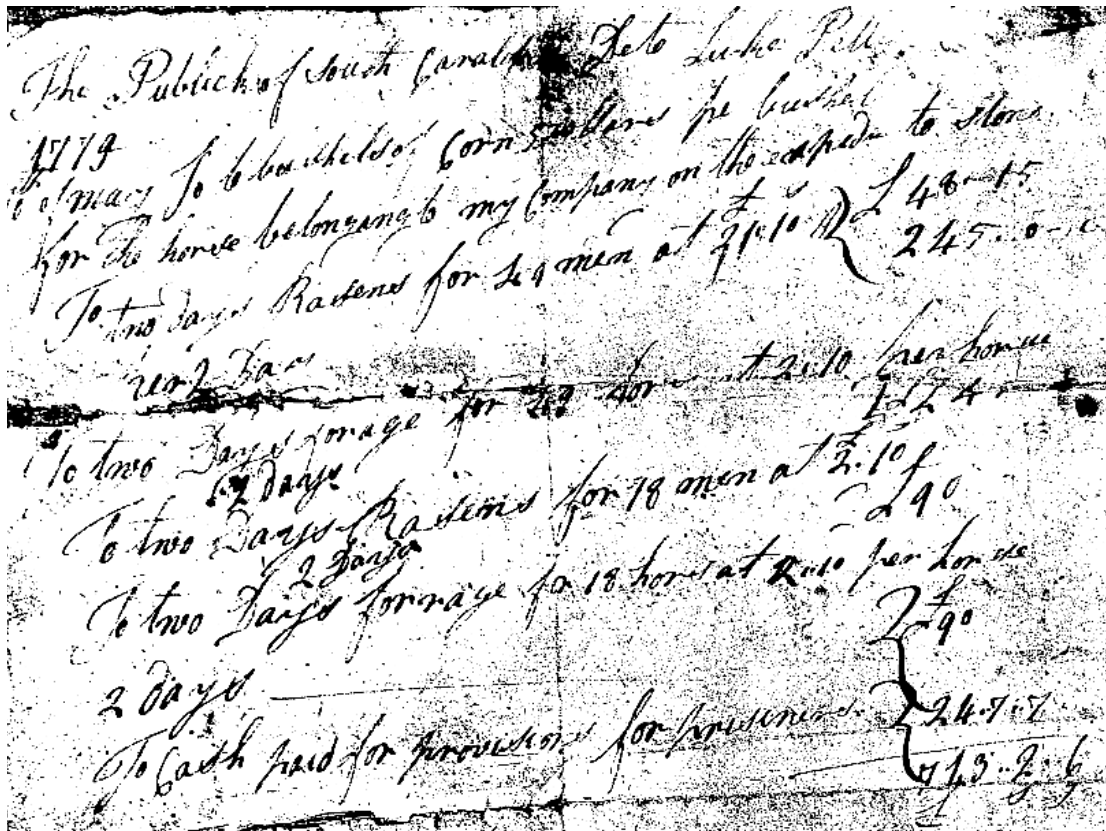 The Publick of South Carolina De to Luke Pell
1779
of may To 6 bushels of Corn 5 dollars pe bushel
for the horse belonging to my Company on the expedn to stono
£ 48..15
To two days Rasens for 49 men at £2.10 245..0
per 2 Days
To two Days forage for 49 hors at 2.10 per horse
2 days
To two Days Rasens for 18 men at £2.10
£90
2 Days
To two Days forrage for 18 hors at 2..10 per horse
£90
2 days
To Cash paid for provisions for prisoners 24.7.7
743..2..6